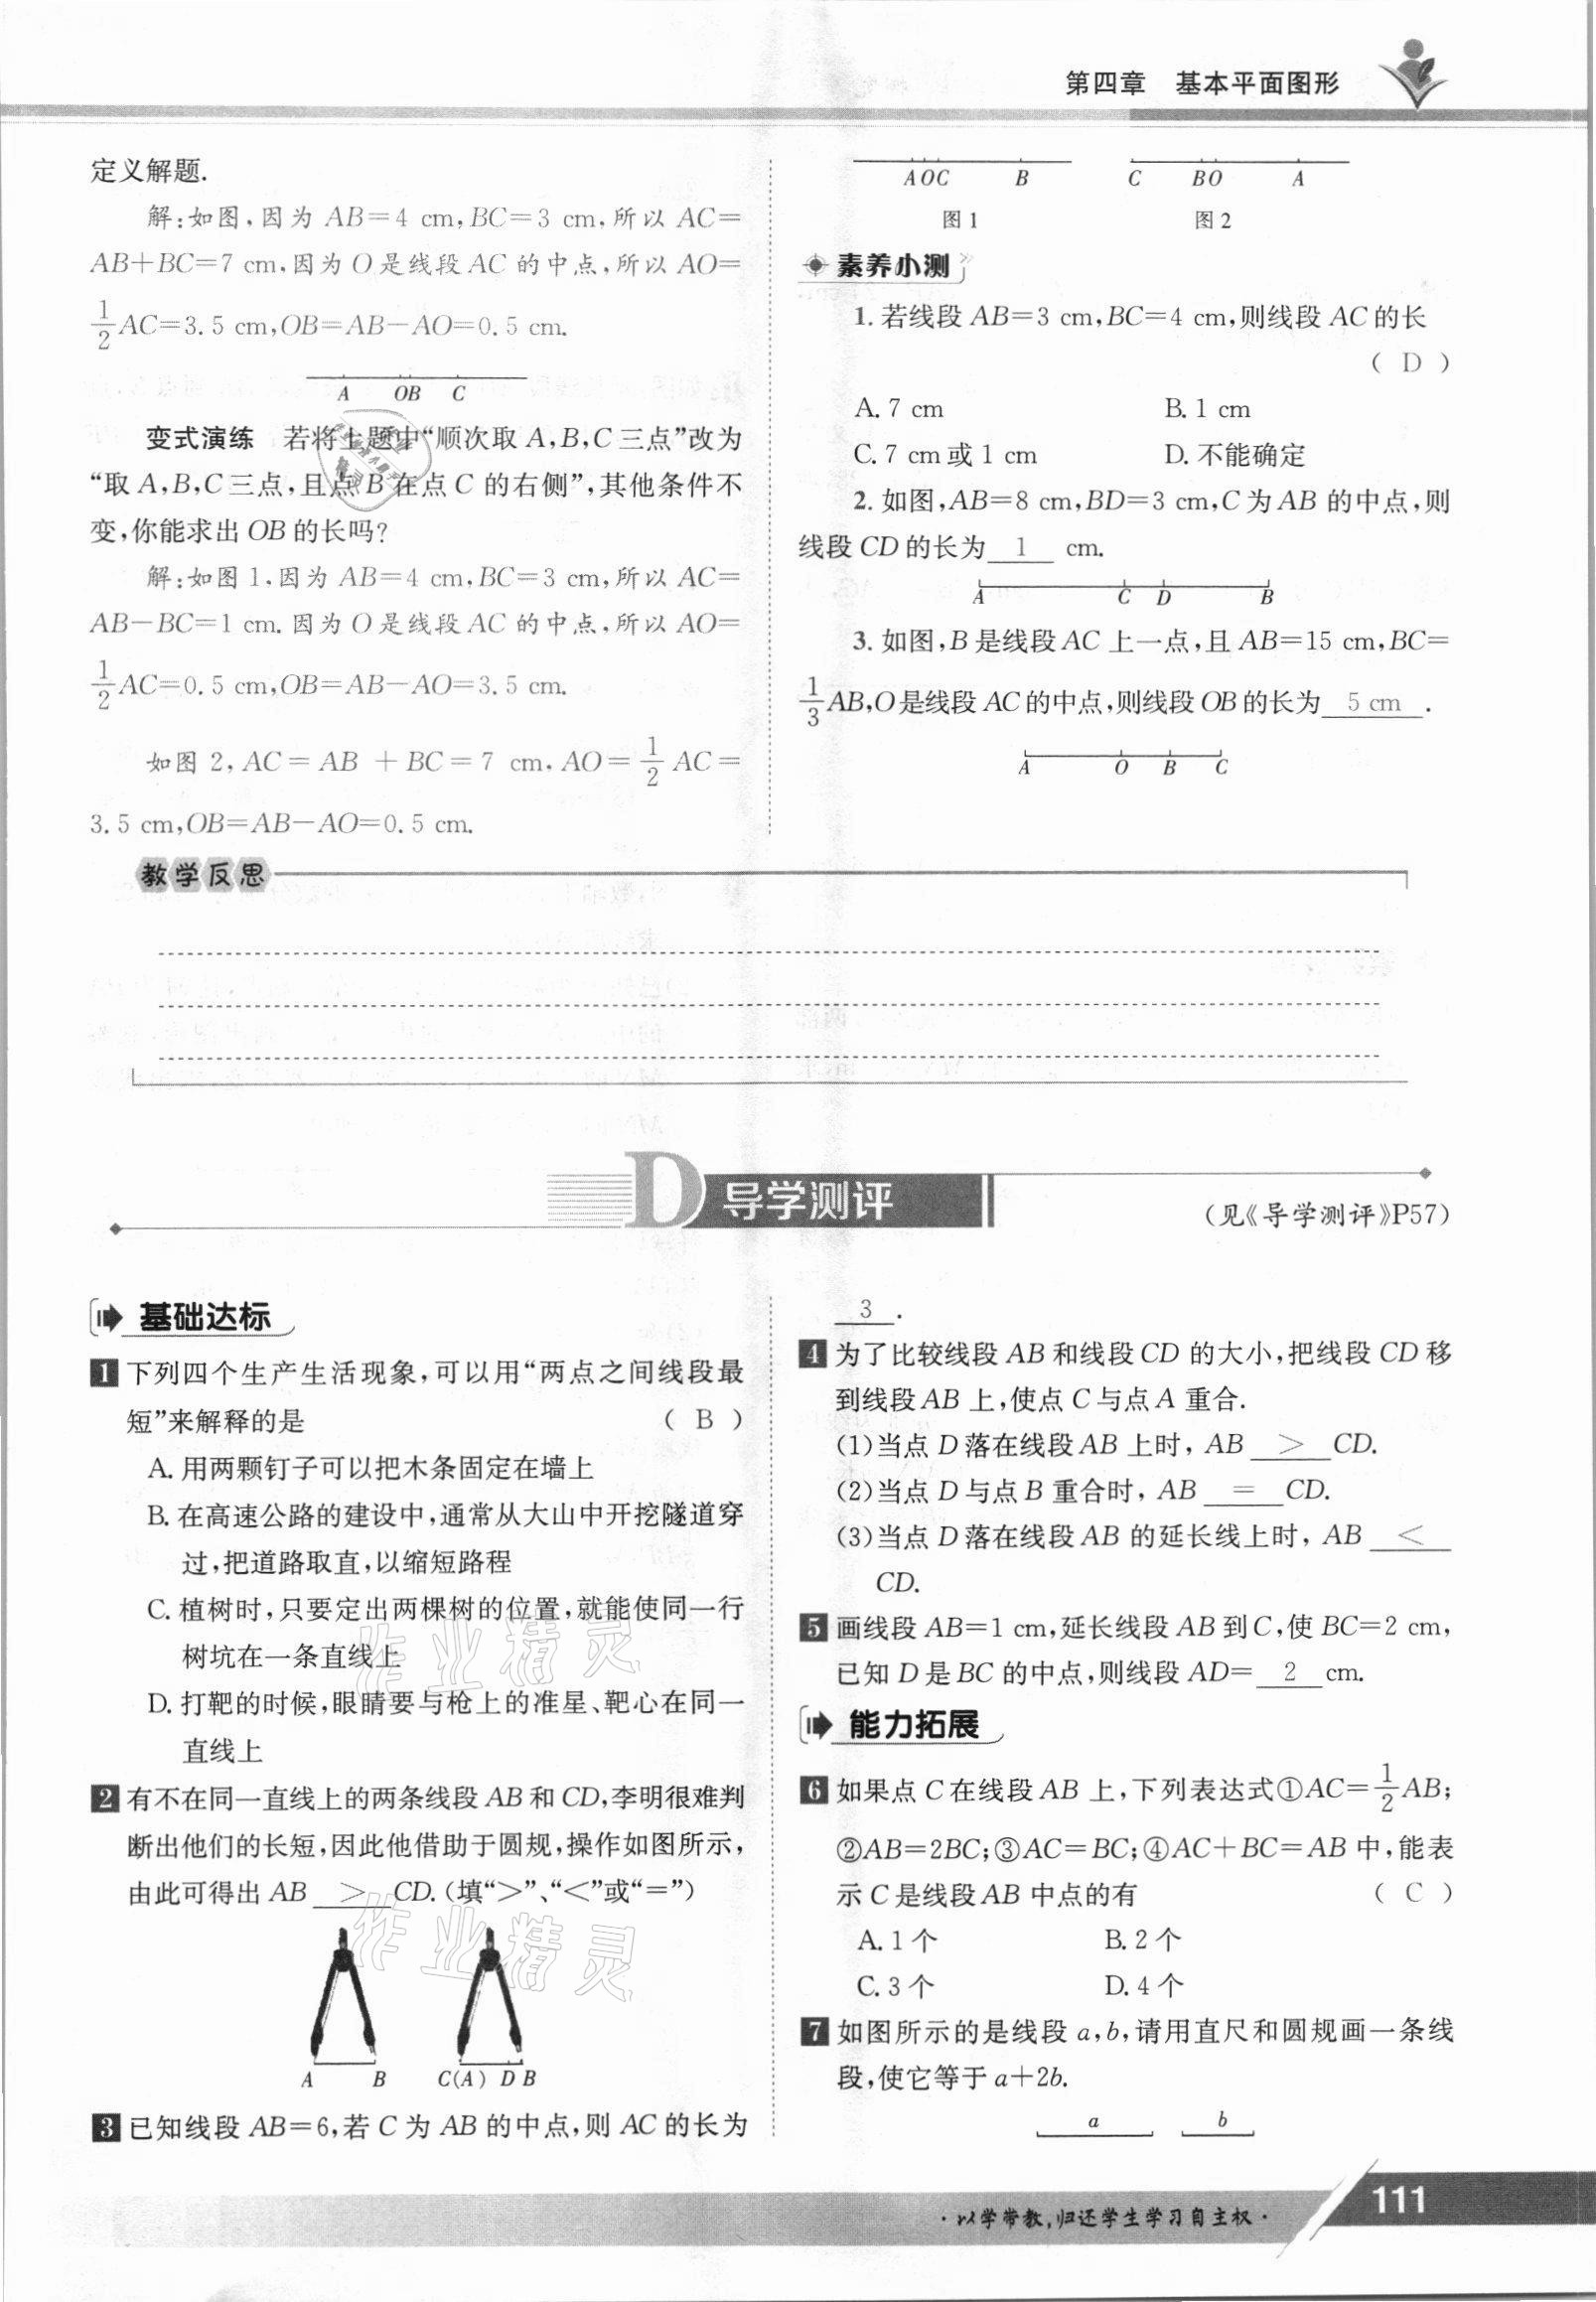 第四章 基本平面图形
定义解题.
解:如图,因为 AB=4 cm,BC=3 cm,所以 AC=
AB+BC=7 cm,因为 O 是线段 AC 的中点,所以 AO=
1/2 AC=3.5 cm,OB=AB-AO=0.5 cm.
A OB C
变式演练 若将上题中“顺次取 A,B,C 三点”改为
“取 A,B,C 三点,且点 B 在点 C 的右侧”,其他条件不
变,你能求出 OB 的长吗?
解:如图 1,因为 AB=4 cm,BC=3 cm,所以 AC=
AB-BC=1 cm.因为 O 是线段 AC 的中点,所以 AO=
1/2 AC=0.5 cm,OB=AB-AO=3.5 cm.
如图 2,AC=AB+BC=7 cm,AO=1/2 AC=
3.5 cm,OB=AB-AO=0.5 cm.
AOC B C BO A
图 1 图 2
素养小测
1.若线段 AB=3 cm,BC=4 cm,则线段 AC 的长
( D )
A.7 cm B.1 cm
C.7 cm 或 1 cm D.不能确定
2.如图,AB=8 cm,BD=3 cm,C 为 AB 的中点,则
线段 CD 的长为 1 cm.
A C D B
3.如图,B 是线段 AC 上一点,且 AB=15 cm,BC=
1/3 AB,O 是线段 AC 的中点,则线段 OB 的长为 5 cm .
A O B C
教学反思
D 导学测评
(见《导学测评》P57)
基础达标
1 下列四个生产生活现象,可以用“两点之间线段最
短”来解释的是 ( B )
A.用两颗钉子可以把木条固定在墙上
B.在高速公路的建设中,通常从大山中开挖隧道穿
过,把道路取直,以缩短路程
C.植树时,只要定出两棵树的位置,就能使同一行
树坑在一条直线上
D.打靶的时候,眼睛要与枪上的准星、靶心在同一
直线上
2 有不在同一直线上的两条线段 AB 和 CD,李明很难判
断出他们的长短,因此他借助于圆规,操作如图所示,
由此可得出 AB > CD.(填“>”、“<”或“=”)
A B C(A) D B
3 已知线段 AB=6,若 C 为 AB 的中点,则 AC 的长为
3 .
4 为了比较线段 AB 和线段 CD 的大小,把线段 CD 移
到线段 AB 上,使点 C 与点 A 重合.
(1)当点 D 落在线段 AB 上时,AB > CD.
(2)当点 D 与点 B 重合时,AB = CD.
(3)当点 D 落在线段 AB 的延长线上时,AB <
CD.
5 画线段 AB=1 cm,延长线段 AB 到 C,使 BC=2 cm,
已知 D 是 BC 的中点,则线段 AD= 2 cm.
能力拓展
6 如果点 C 在线段 AB 上,下列表达式①AC=1/2 AB;
②AB=2BC;③AC=BC;④AC+BC=AB 中,能表
示 C 是线段 AB 中点的有 ( C )
A.1 个 B.2 个
C.3 个 D.4 个
7 如图所示的是线段 a,b,请用直尺和圆规画一条线
段,使它等于 a+2b.
a b
作业精灵
作业精灵
·以学带教,归还学生学习自主权·
111